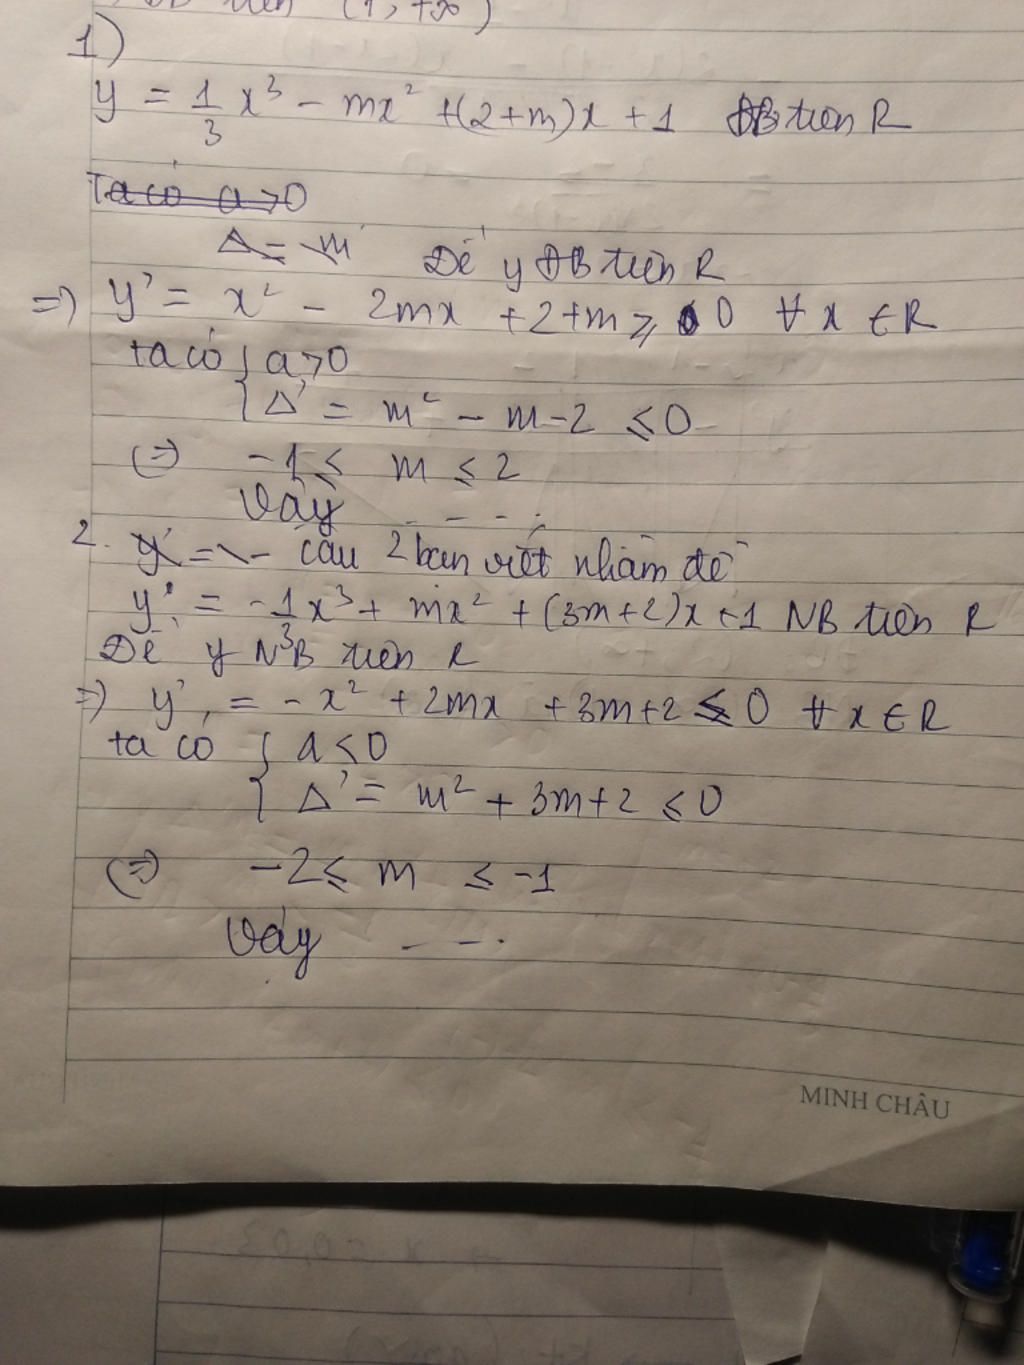 ĐB trên (1, +∞)
1)
y = 1/3 x³ - mx² + (2+m)x + 1 ĐB trên R
Ta có a > 0
Δ = m Để y ĐB trên R
=> y' = x² - 2mx + 2 + m ⩾ 0 ∀ x ∈ R
ta có { a > 0
{ Δ' = m² - m - 2 ⩽ 0
(=) -1 ⩽ m ⩽ 2
Vậy - - - .
2. y' = \ - câu 2 bạn viết nhầm đề
y = -1/3 x³ + mx² + (3m+2)x + 1 NB trên R
Để y NB trên R
=> y' = -x² + 2mx + 3m+2 ⩽ 0 ∀ x ∈ R
ta có { a < 0
{ Δ' = m² + 3m+2 ⩽ 0
(=) -2 ⩽ m ⩽ -1
Vậy - - .
MINH CHÂU